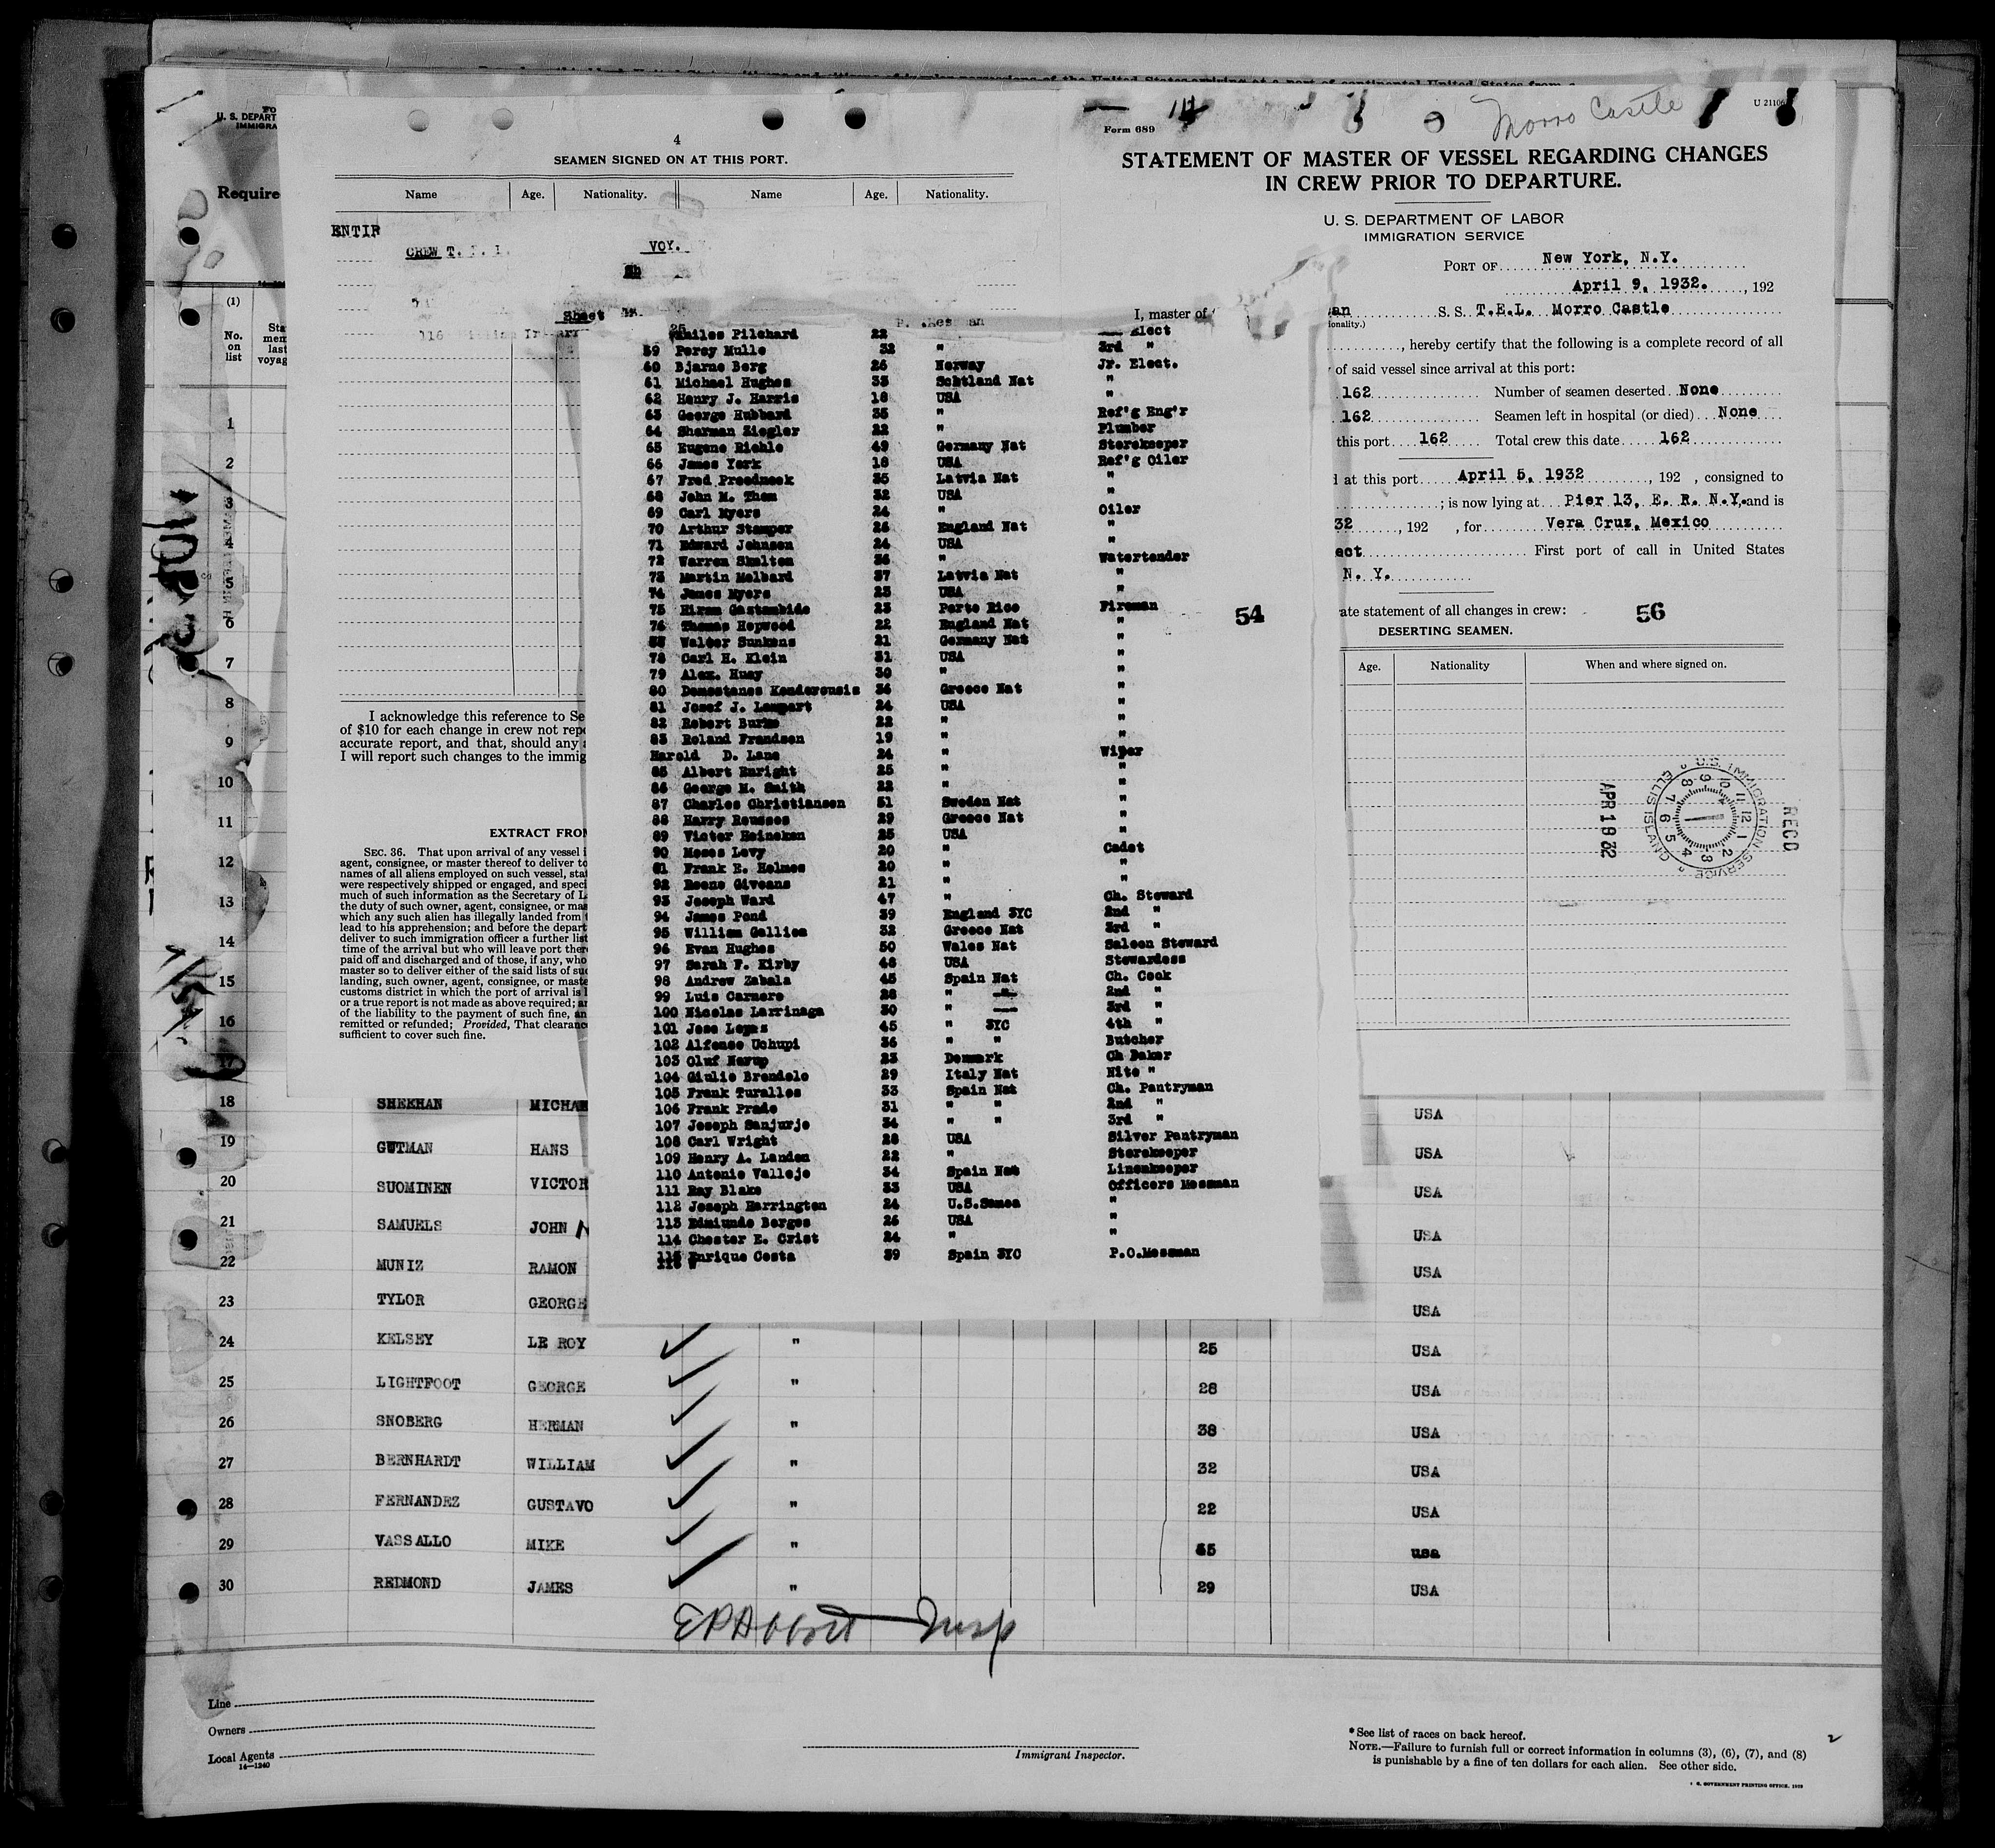 4
SEAMEN SIGNED ON AT THIS PORT.
Name Age. Nationality. Name Age. Nationality.
CREW T. VOY.
Sheet
I acknowledge this reference to Se
of $10 for each change in crew not rep
accurate report, and that, should any
I will report such changes to the immig
EXTRACT FROM
SEC. 36. That upon arrival of any vessel i
agent, consignee, or master thereof to deliver to
names of all aliens employed on such vessel, stat
were respectively shipped or engaged, and speci
much of such information as the Secretary of L
the duty of such owner, agent, consignee, or mas
which any such alien has illegally landed from
lead to his apprehension; and before the depart
deliver to such immigration officer a further list
time of the arrival but who will leave port ther
paid off and discharged and of those, if any, who
master so to deliver either of the said lists of suc
landing, such owner, agent, consignee, or maste
customs district in which the port of arrival is l
or a true report is not made as above required; an
of the liability to the payment of such fine, an
remitted or refunded; Provided, That clearanc
sufficient to cover such fine.
Morro Castle
Form 689
STATEMENT OF MASTER OF VESSEL REGARDING CHANGES
IN CREW PRIOR TO DEPARTURE.
U. S. DEPARTMENT OF LABOR
IMMIGRATION SERVICE
PORT OF New York, N.Y.
April 9, 1932. , 192
I, master of an S. S. T.E.L. Morro Castle
ionality.)
, hereby certify that the following is a complete record of all
of said vessel since arrival at this port:
162 Number of seamen deserted None
162 Seamen left in hospital (or died) None
this port 162 Total crew this date 162
at this port April 5, 1932 , 192 , consigned to
; is now lying at Pier 13, E. R. N.Y. and is
32 , 192 , for Vera Cruz, Mexico
ect First port of call in United States
N. Y.
ate statement of all changes in crew: 56
DESERTING SEAMEN.
Age. Nationality When and where signed on.
U.S. IMMIGRATION SERVICE ELLIS ISLAND
RECD
Pilchard 22 Elect
59 Percy Mulle 32 " 3rd "
60 Bjarne Berg 26 Norway Jr. Elect.
61 Michael Hughes 33 Scotland Nat "
62 Henry J. Harris 18 USA "
63 George Hubbard 35 " Ref'g Eng'r
64 Sherman Ziegler 22 " Plumber
65 Eugene Riehle 49 Germany Nat Storekeeper
66 James York 18 USA Ref'g Oiler
67 Fred Preedneek 35 Latvia Nat "
68 John M. Thom 32 USA "
69 Carl Myers 24 " Oiler
70 Arthur Stamper 26 England Nat "
71 Edward Johnson 24 USA "
72 Warren Skelton 36 " Watertender
73 Martin Melbard 37 Latvia Nat "
74 James Myers 23 USA "
75 Hiram Gastambide 23 Porto Rico Fireman
54
76 Thomas Hopwood 22 England Nat "
Walter Sunkens 21 Germany Nat "
78 Carl H. Klein 31 USA "
79 Alex. Huey 30 " "
80 Demostanes Kenderousis 36 Greece Nat "
81 Josef J. Lempart 24 USA "
82 Robert Burke 22 " "
83 Roland Frandsen 19 " "
Harold D. Lane 24 " Wiper
85 Albert Enright 25 " "
86 George M. Smith 22 " "
87 Charles Christiansen 51 Sweden Nat "
88 Harry Rousses 29 Greece Nat "
89 Victor Heineken 25 USA "
90 Moses Levy 20 " Cadet
91 Frank E. Holmes 20 " "
92 Reene Giveans 21 " "
93 Joseph Ward 47 " Ch. Steward
94 James Pond 39 England SYC 2nd "
95 William Gallion 32 Greece Nat 3rd "
96 Evan Hughes 50 Wales Nat Saloon Steward
97 Sarah F. Kirby 48 USA Stewardess
98 Andrew Zabala 45 Spain Nat Ch. Cook
99 Luis Carnero 28 " 2nd "
100 Nicolas Larrinaga 30 " 3rd "
101 Jose Lopes 45 " SYC 4th "
102 Alfonso Uchupi 36 " " Butcher
103 Oluf Nerup 23 Denmark Ch Baker
104 Giulio Brendolo 29 Italy Nat Nite "
105 Frank Turalles 33 Spain Nat Ch. Pantryman
106 Frank Prado 31 " " 2nd "
107 Joseph Sanjurjo 34 " " 3rd "
108 Carl Wright 28 USA Silver Pantryman
109 Henry A. Landen 22 " Storekeeper
110 Antonio Vallejo 34 Spain Nat Linenkeeper
111 Ray Blake 33 USA Officers Messman
112 Joseph Harrington 24 U.S.Samoa "
113 Edmundo Borges 26 USA "
114 Chester E. Crist 24 " "
115 Enrique Costa 39 Spain SYC P.O.Messman
U. S. DEPART
IMMIGRA
Require
(1)
No. on list
1
2
3
4
5
6
7
8
9
10
11
12
13
14
15
16
17
18 SHEEHAN MICHA USA
19 GUTMAN HANS USA
20 SUOMINEN VICTOR USA
21 SAMUELS JOHN USA
22 MUNIZ RAMON USA
23 TYLOR GEORGE USA
24 KELSEY LE ROY " 25 USA
25 LIGHTFOOT GEORGE " 28 USA
26 SNOBERG HERMAN " 38 USA
27 BERNHARDT WILLIAM " 32 USA
28 FERNANDEZ GUSTAVO " 22 USA
29 VASSALLO MIKE " usa
30 REDMOND JAMES " 29 USA
Line
Owners
Local Agents
14—1240
Immigrant Inspector.
* See list of races on back hereof.
NOTE.—Failure to furnish full or correct information in columns (3), (6), (7), and (8)
is punishable by a fine of ten dollars for each alien. See other side.